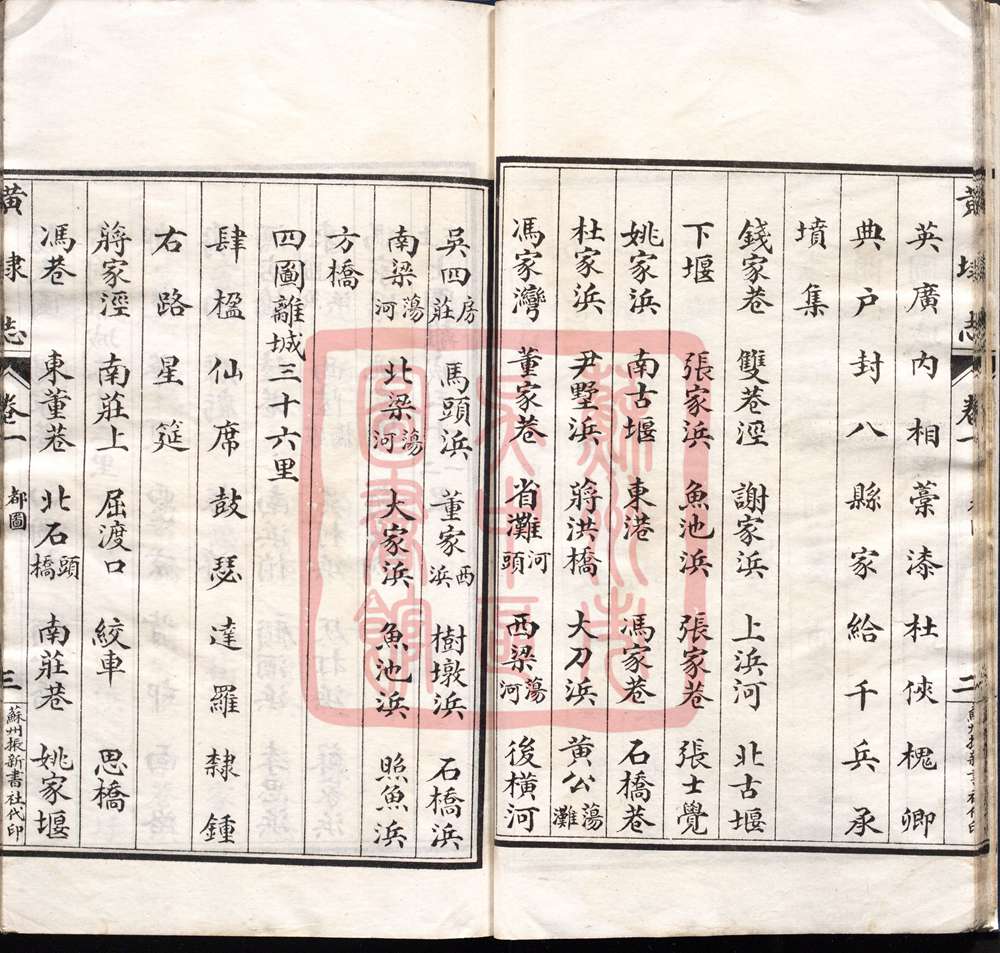 英廣內相藁漆杜俠槐卿
典戶封八縣家給千兵承
墳集
錢家巷 雙巷涇 謝家浜 上浜河 北古堰
下堰 張家浜 魚池浜 張家巷 張士覺
姚家浜 南古堰 東港 馮家巷 石橋巷
杜家浜 尹墅浜 蔣洪橋 大刀浜 黃公蕩灘
馮家灣 董家巷 省灘河頭 西梁蕩河 後橫河
吳四房莊 馬頭浜 董家西浜 樹墩浜 石橋浜
南梁蕩河 北梁蕩河 大家浜 魚池浜 照魚浜
方橋
四圖離城三十六里
肆楹仙席鼓瑟達羅隸鍾
右路星筵
蔣家涇 南莊上 屈渡口 絞車 思橋
馮巷 東董巷 北石頭橋 南莊巷 姚家堰
黃埭志 卷一 都圖 三 蘇州振新書社代印